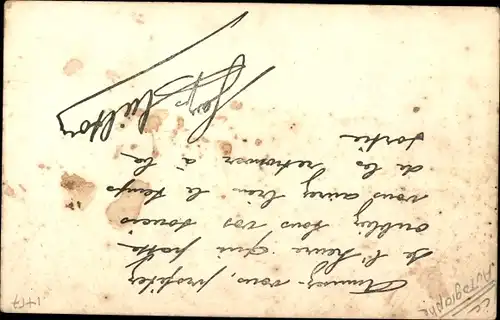 Amusez-vous, profitez
de l'heure qui passe
oubliez tous vos soucis
vous aurez bien le temps
de les retrouver à la
sortie
Milton
Autographe